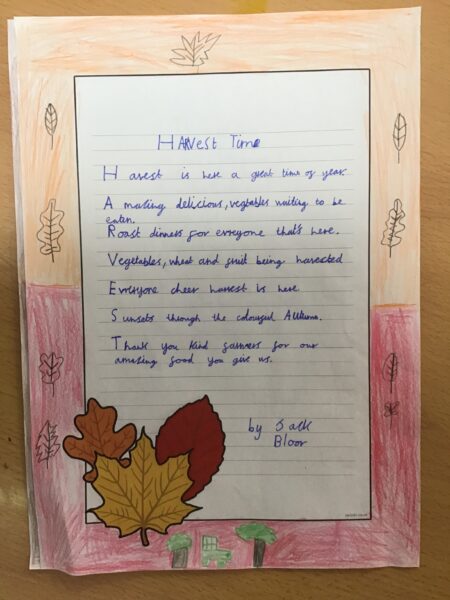 HARVest Time
Harest is here a great time of year.
Amazing delicious, vegtables waiting to be
eaten.
Roast dinners for everyone that's here.
Vegetables, wheat and fruit being harested
Everyone cheer harvest is here
Sunsets through the colourful Autumn.
Thank you kind farmers for our
amazing food you give us.
by Jack
Bloor